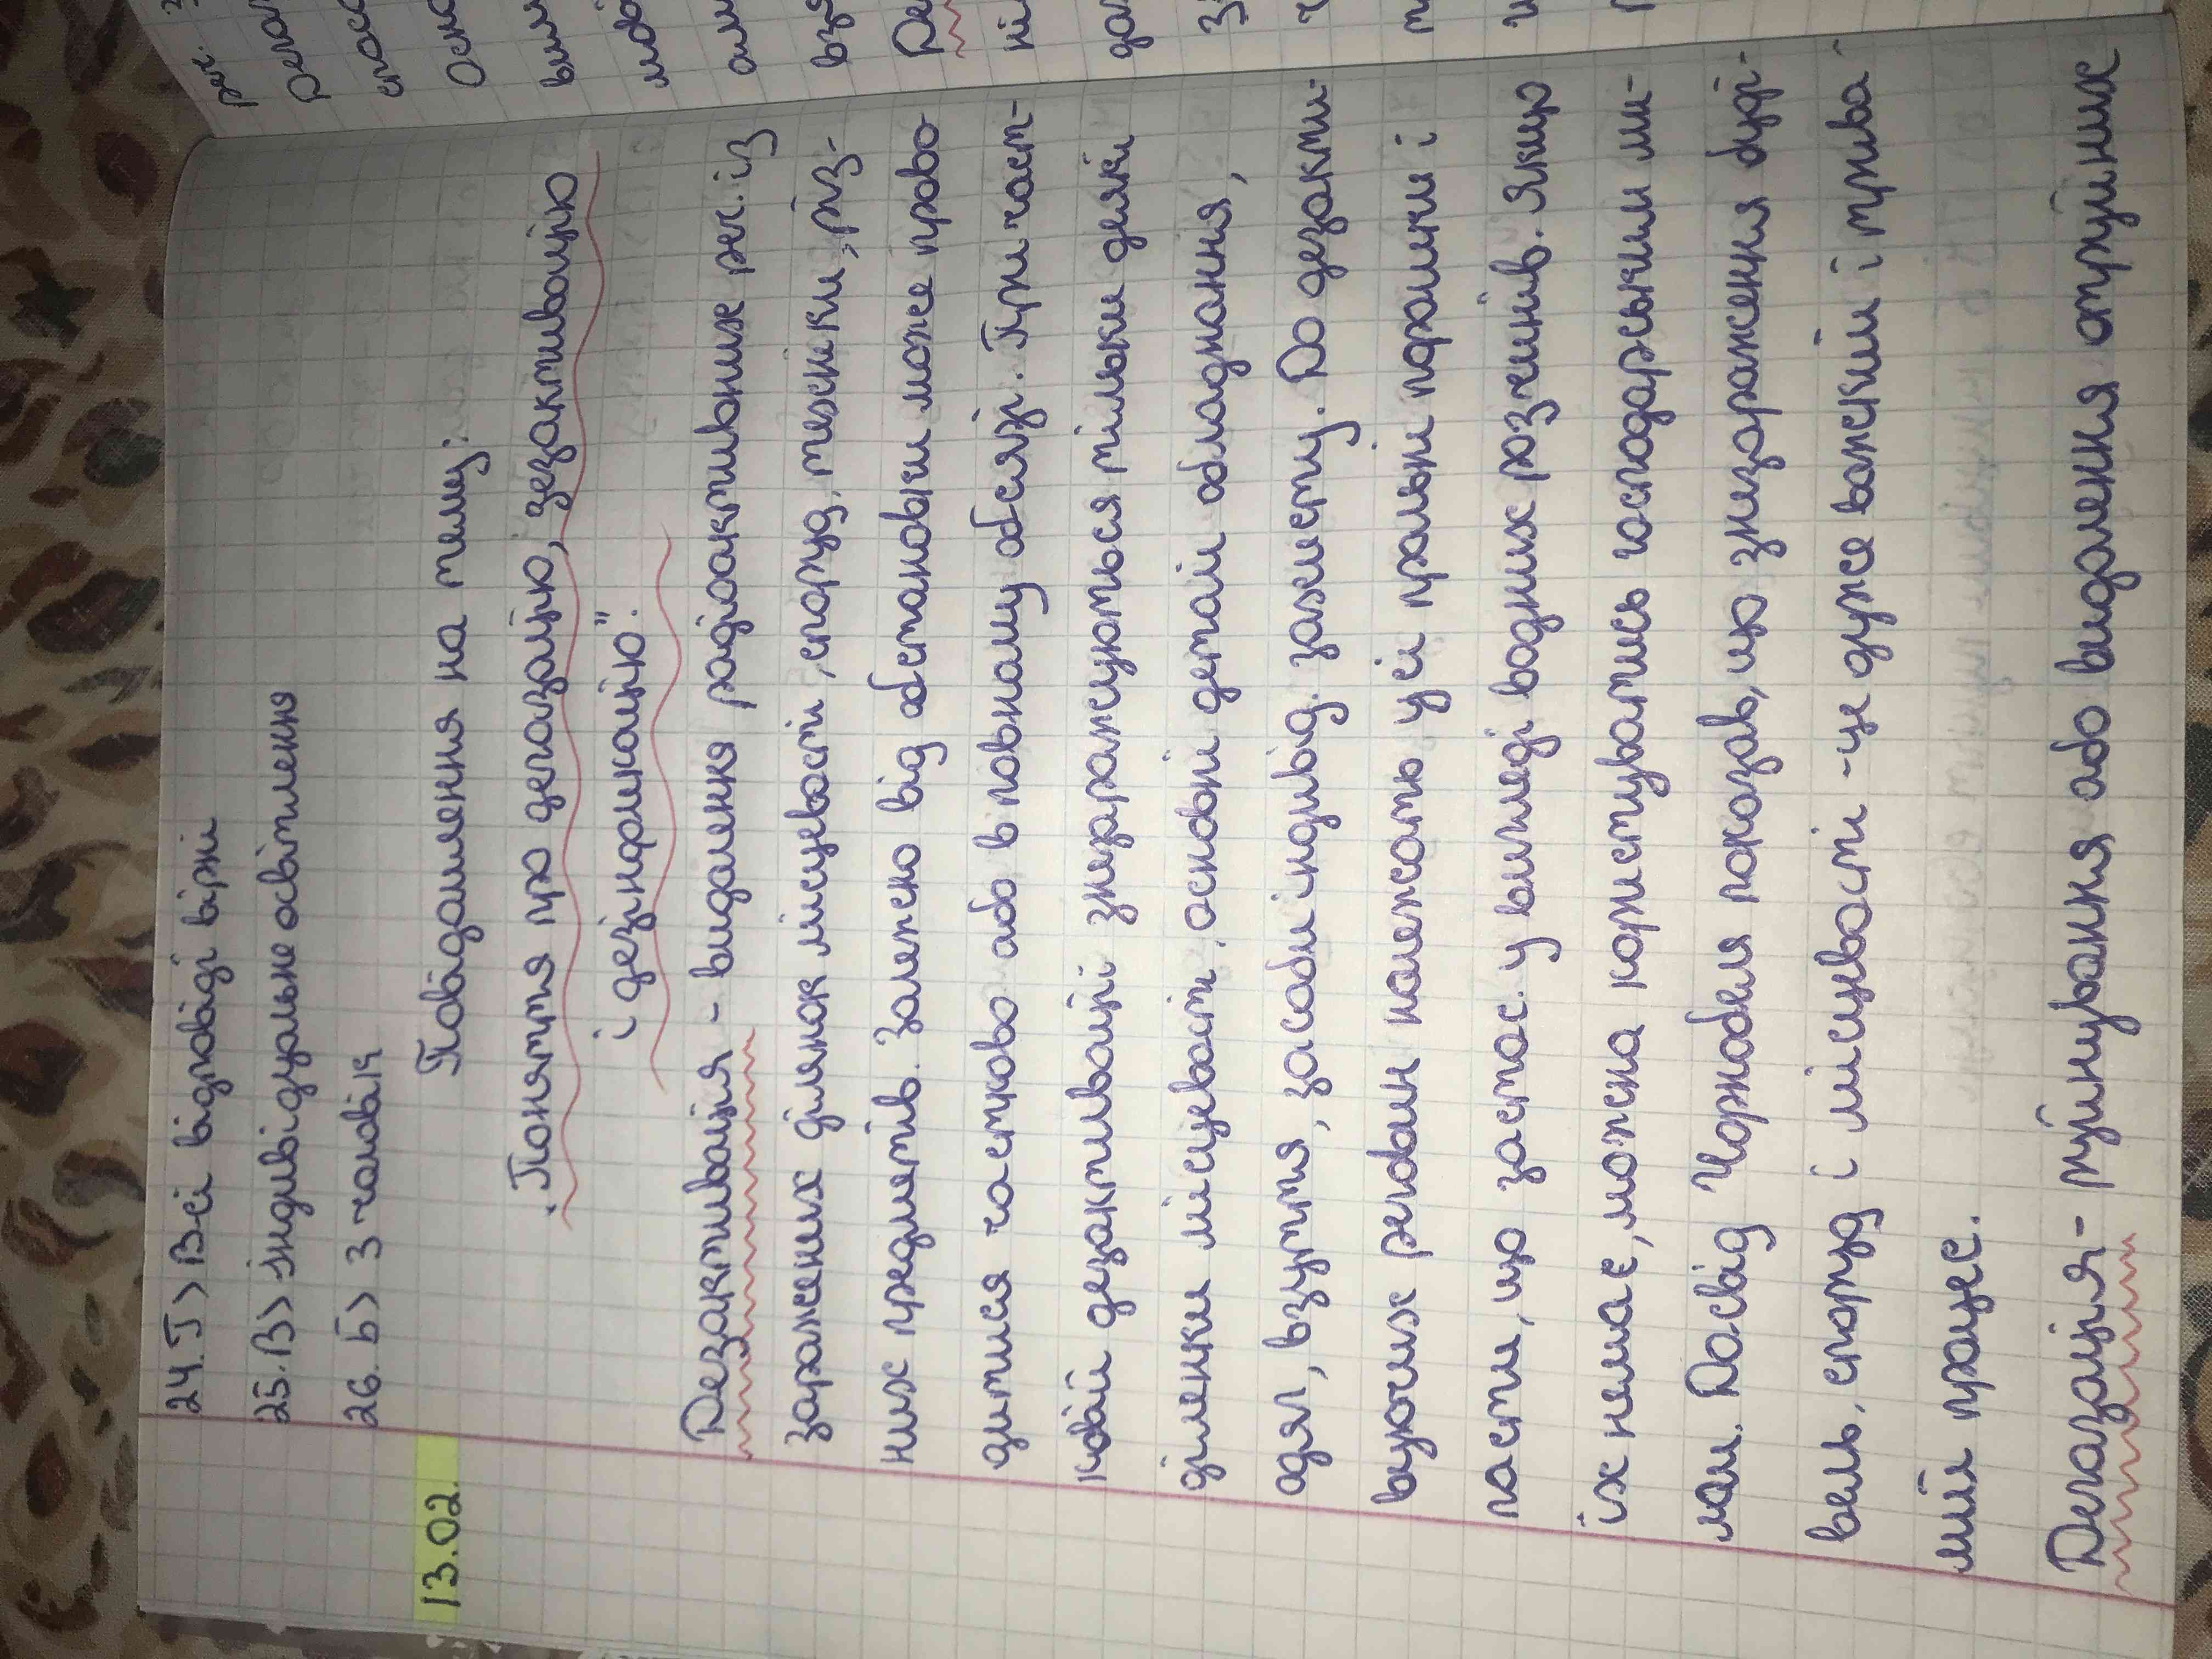 24. Г) Всі відповіді вірні
25. В) Індивідуальне освітлення
26. Б) 3 чоловік
13.02.
Повідомлення на тему:
„Поняття про дегазацію, дезактивацію
і дезінфекцію".
Дезактивація - видалення радіоактивних реч. із
заражених ділянок місцевості, споруд, техніки, різ-
них предметів. Залежно від обстановки може прово-
дитися частково або в повному обсязі. При част-
ковій дезактивації знезаражуються тільки деякі
ділянки місцевості, основні деталі обладнання,
одяг, взуття, засоби індивід. захисту. До дезакти-
вуючих речовин належать усі пральні порошки і
пасти, що застос. у вигляді водних розчинів. Якщо
їх немає, можна користуватись господарським ми-
лом. Досвід Чорнобиля показав, що знезараження буді-
вель, споруд і місцевості - це дуже важкий і трива-
лий процес.
Дегазація - руйнування або видалення отруйних